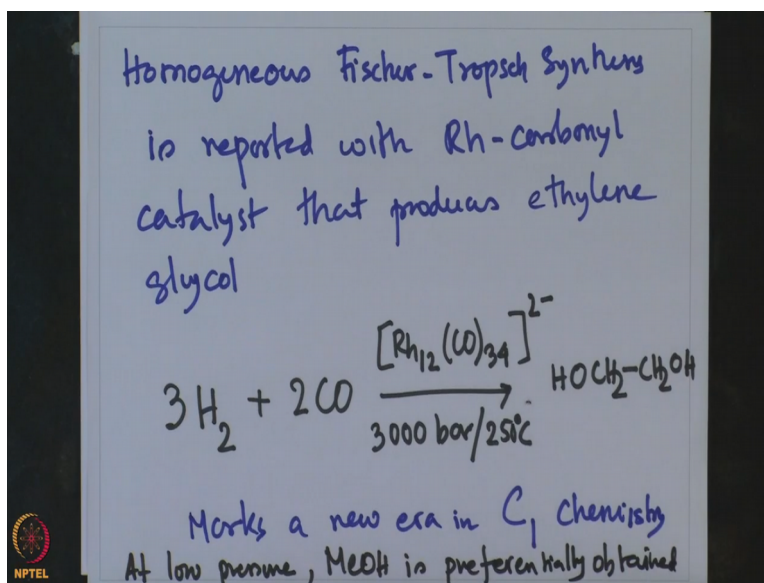 Homogeneous Fischer-Tropsch Synthesis
is reported with Rh-carbonyl
catalyst that produces ethylene
glycol
[Rh₁₂(CO)₃₄]²⁻
3H₂ + 2CO → HOCH₂-CH₂OH
3000 bar/250°C
Marks a new era in C₁ Chemistry
At low pressure, MeOH is preferentially obtained
NPTEL